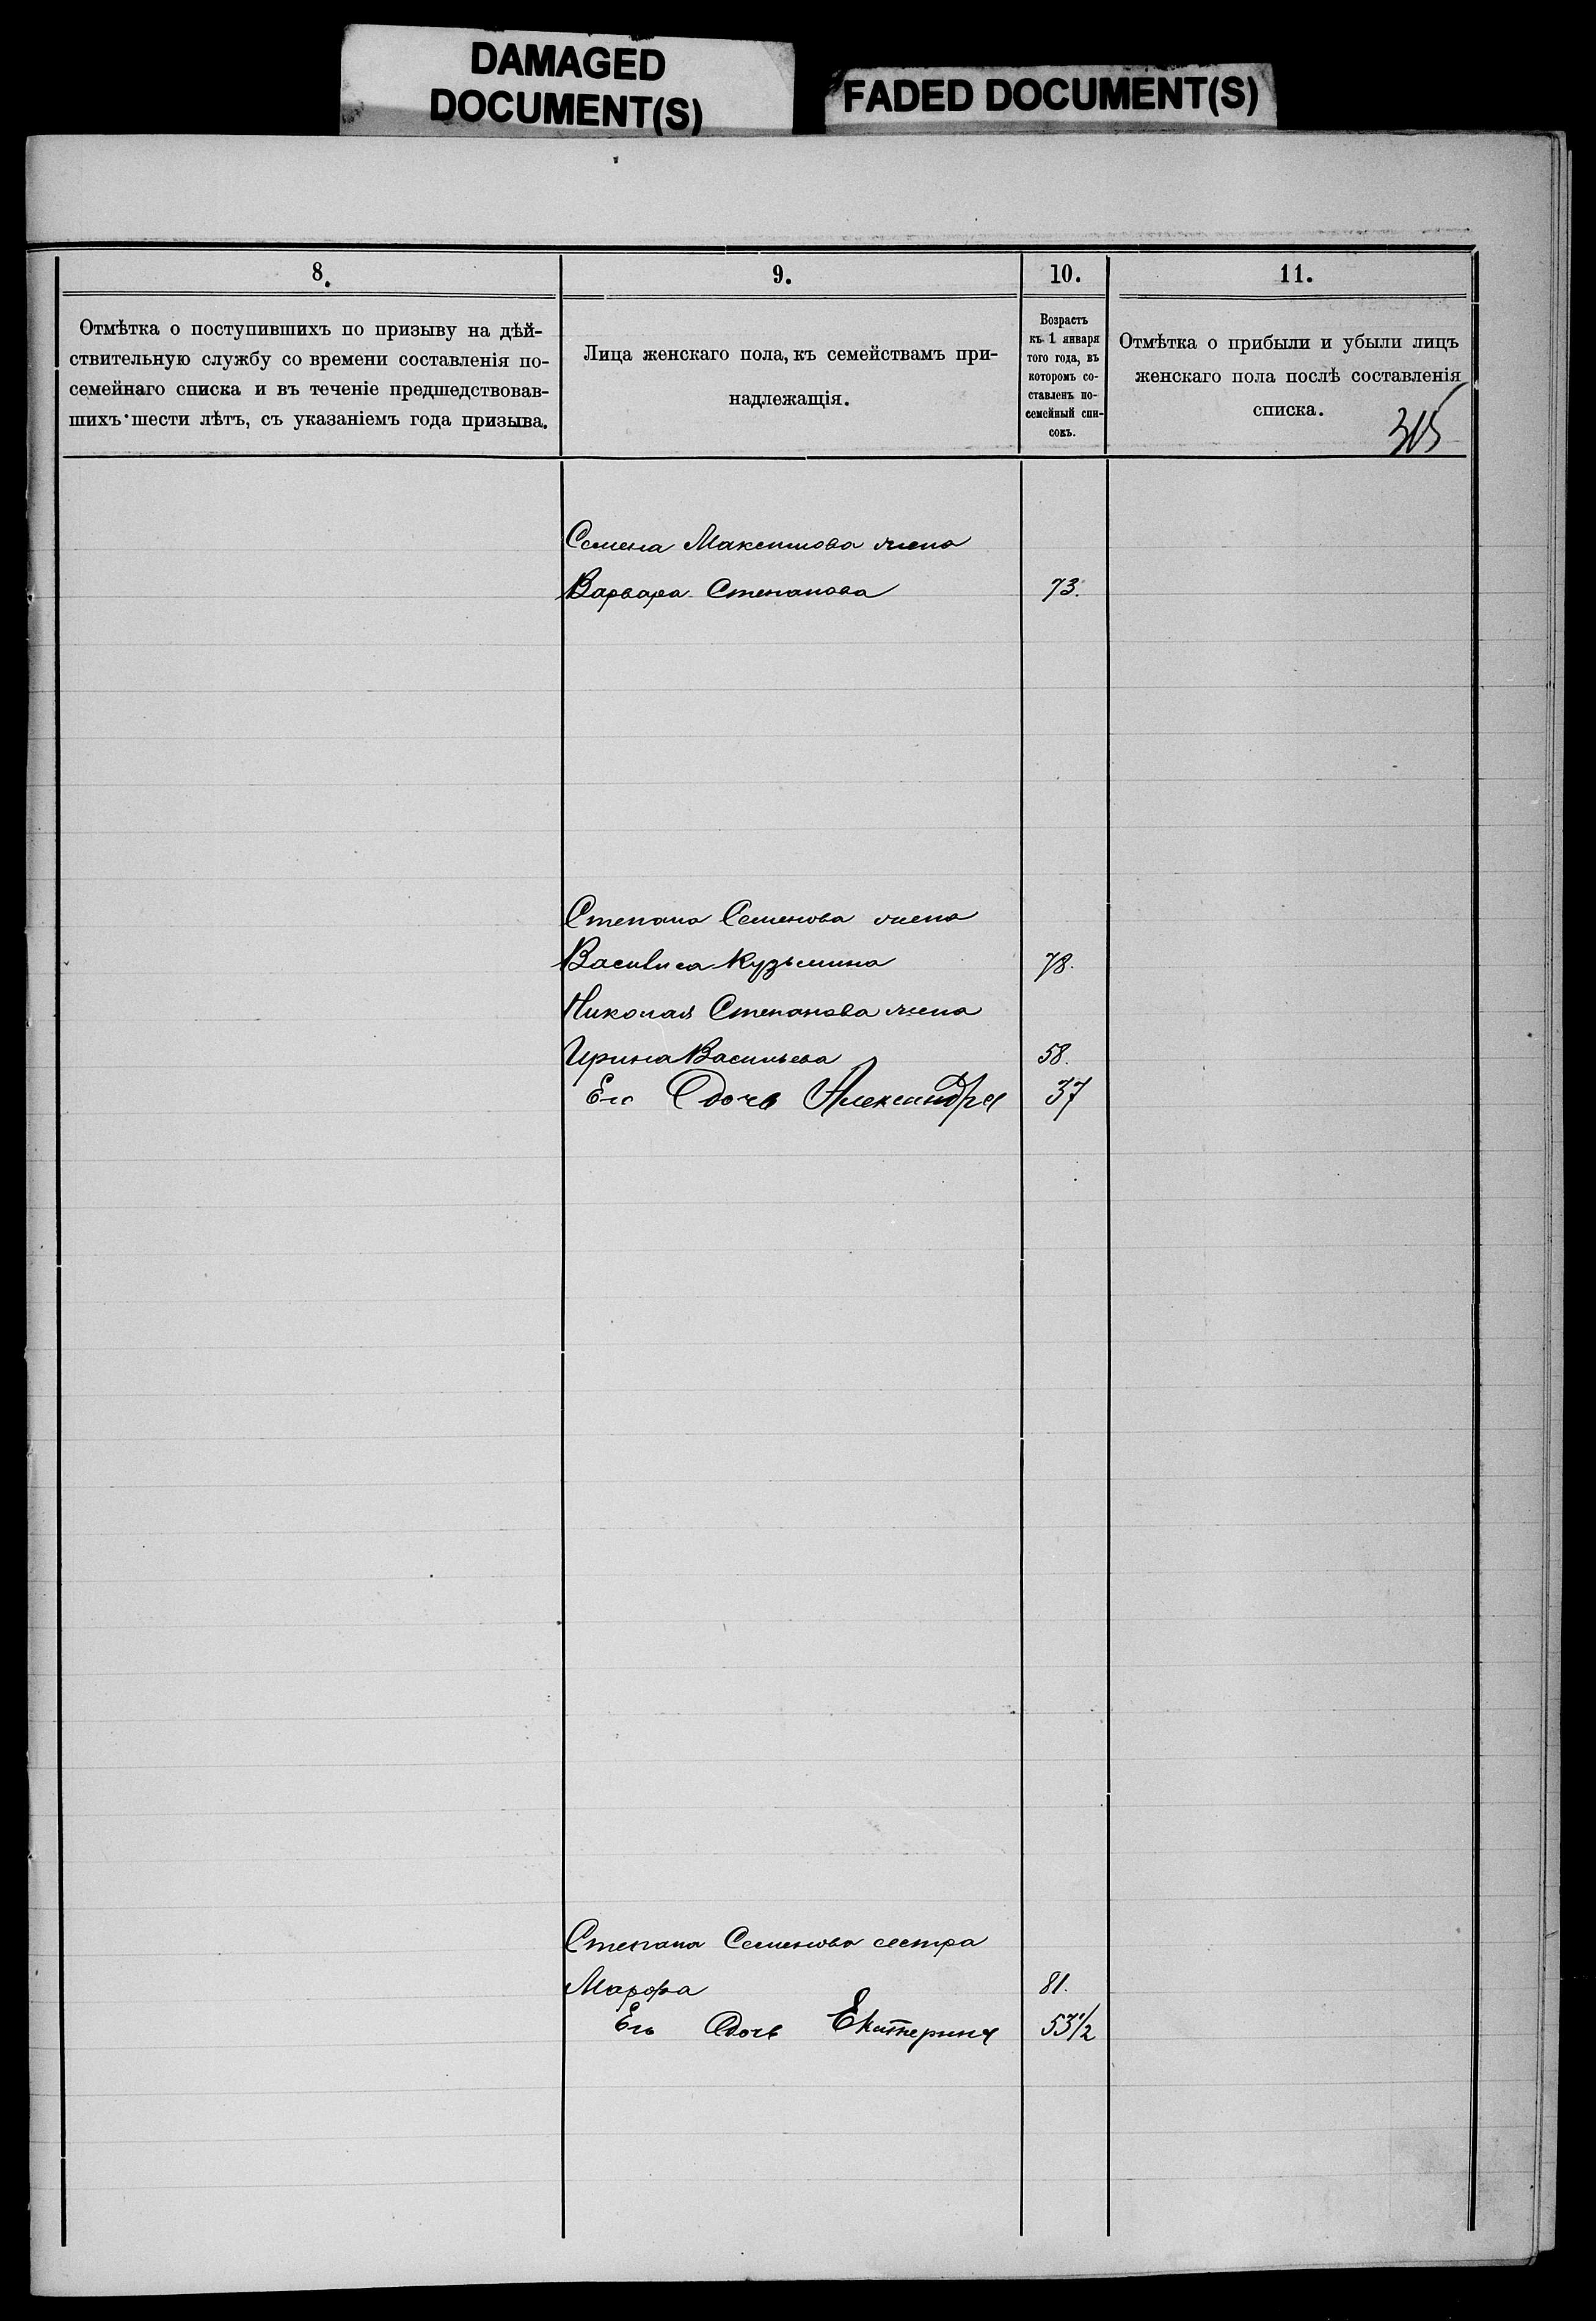 DAMAGED
DOCUMENT(S)
FADED DOCUMENT(S)
8.
9.
10.
11.
Отмѣтка о поступившихъ по призыву на дѣй-
ствительную службу со времени составленія по-
семейнаго списка и въ теченіе предшедствовав-
шихъ шести лѣтъ, съ указаніемъ года призыва.
Лица женскаго пола, къ семействамъ при-
надлежащія.
Возрастъ
къ 1 января
того года, въ
которомъ со-
ставленъ по-
семейный спи-
сокъ.
Отмѣтка о прибыли и убыли лицъ
женскаго пола послѣ составленія
списка.
315
Семена Максимова жена
Варвара Степанова 73.
Степана Семенова жена
Василиса Кузьмина 78.
Николая Степанова жена
Ирина Васильева 58.
Его дочь Александра 37
Степана Семенова сестра
Марфа 81.
Его дочь Екатерина 53 1/2